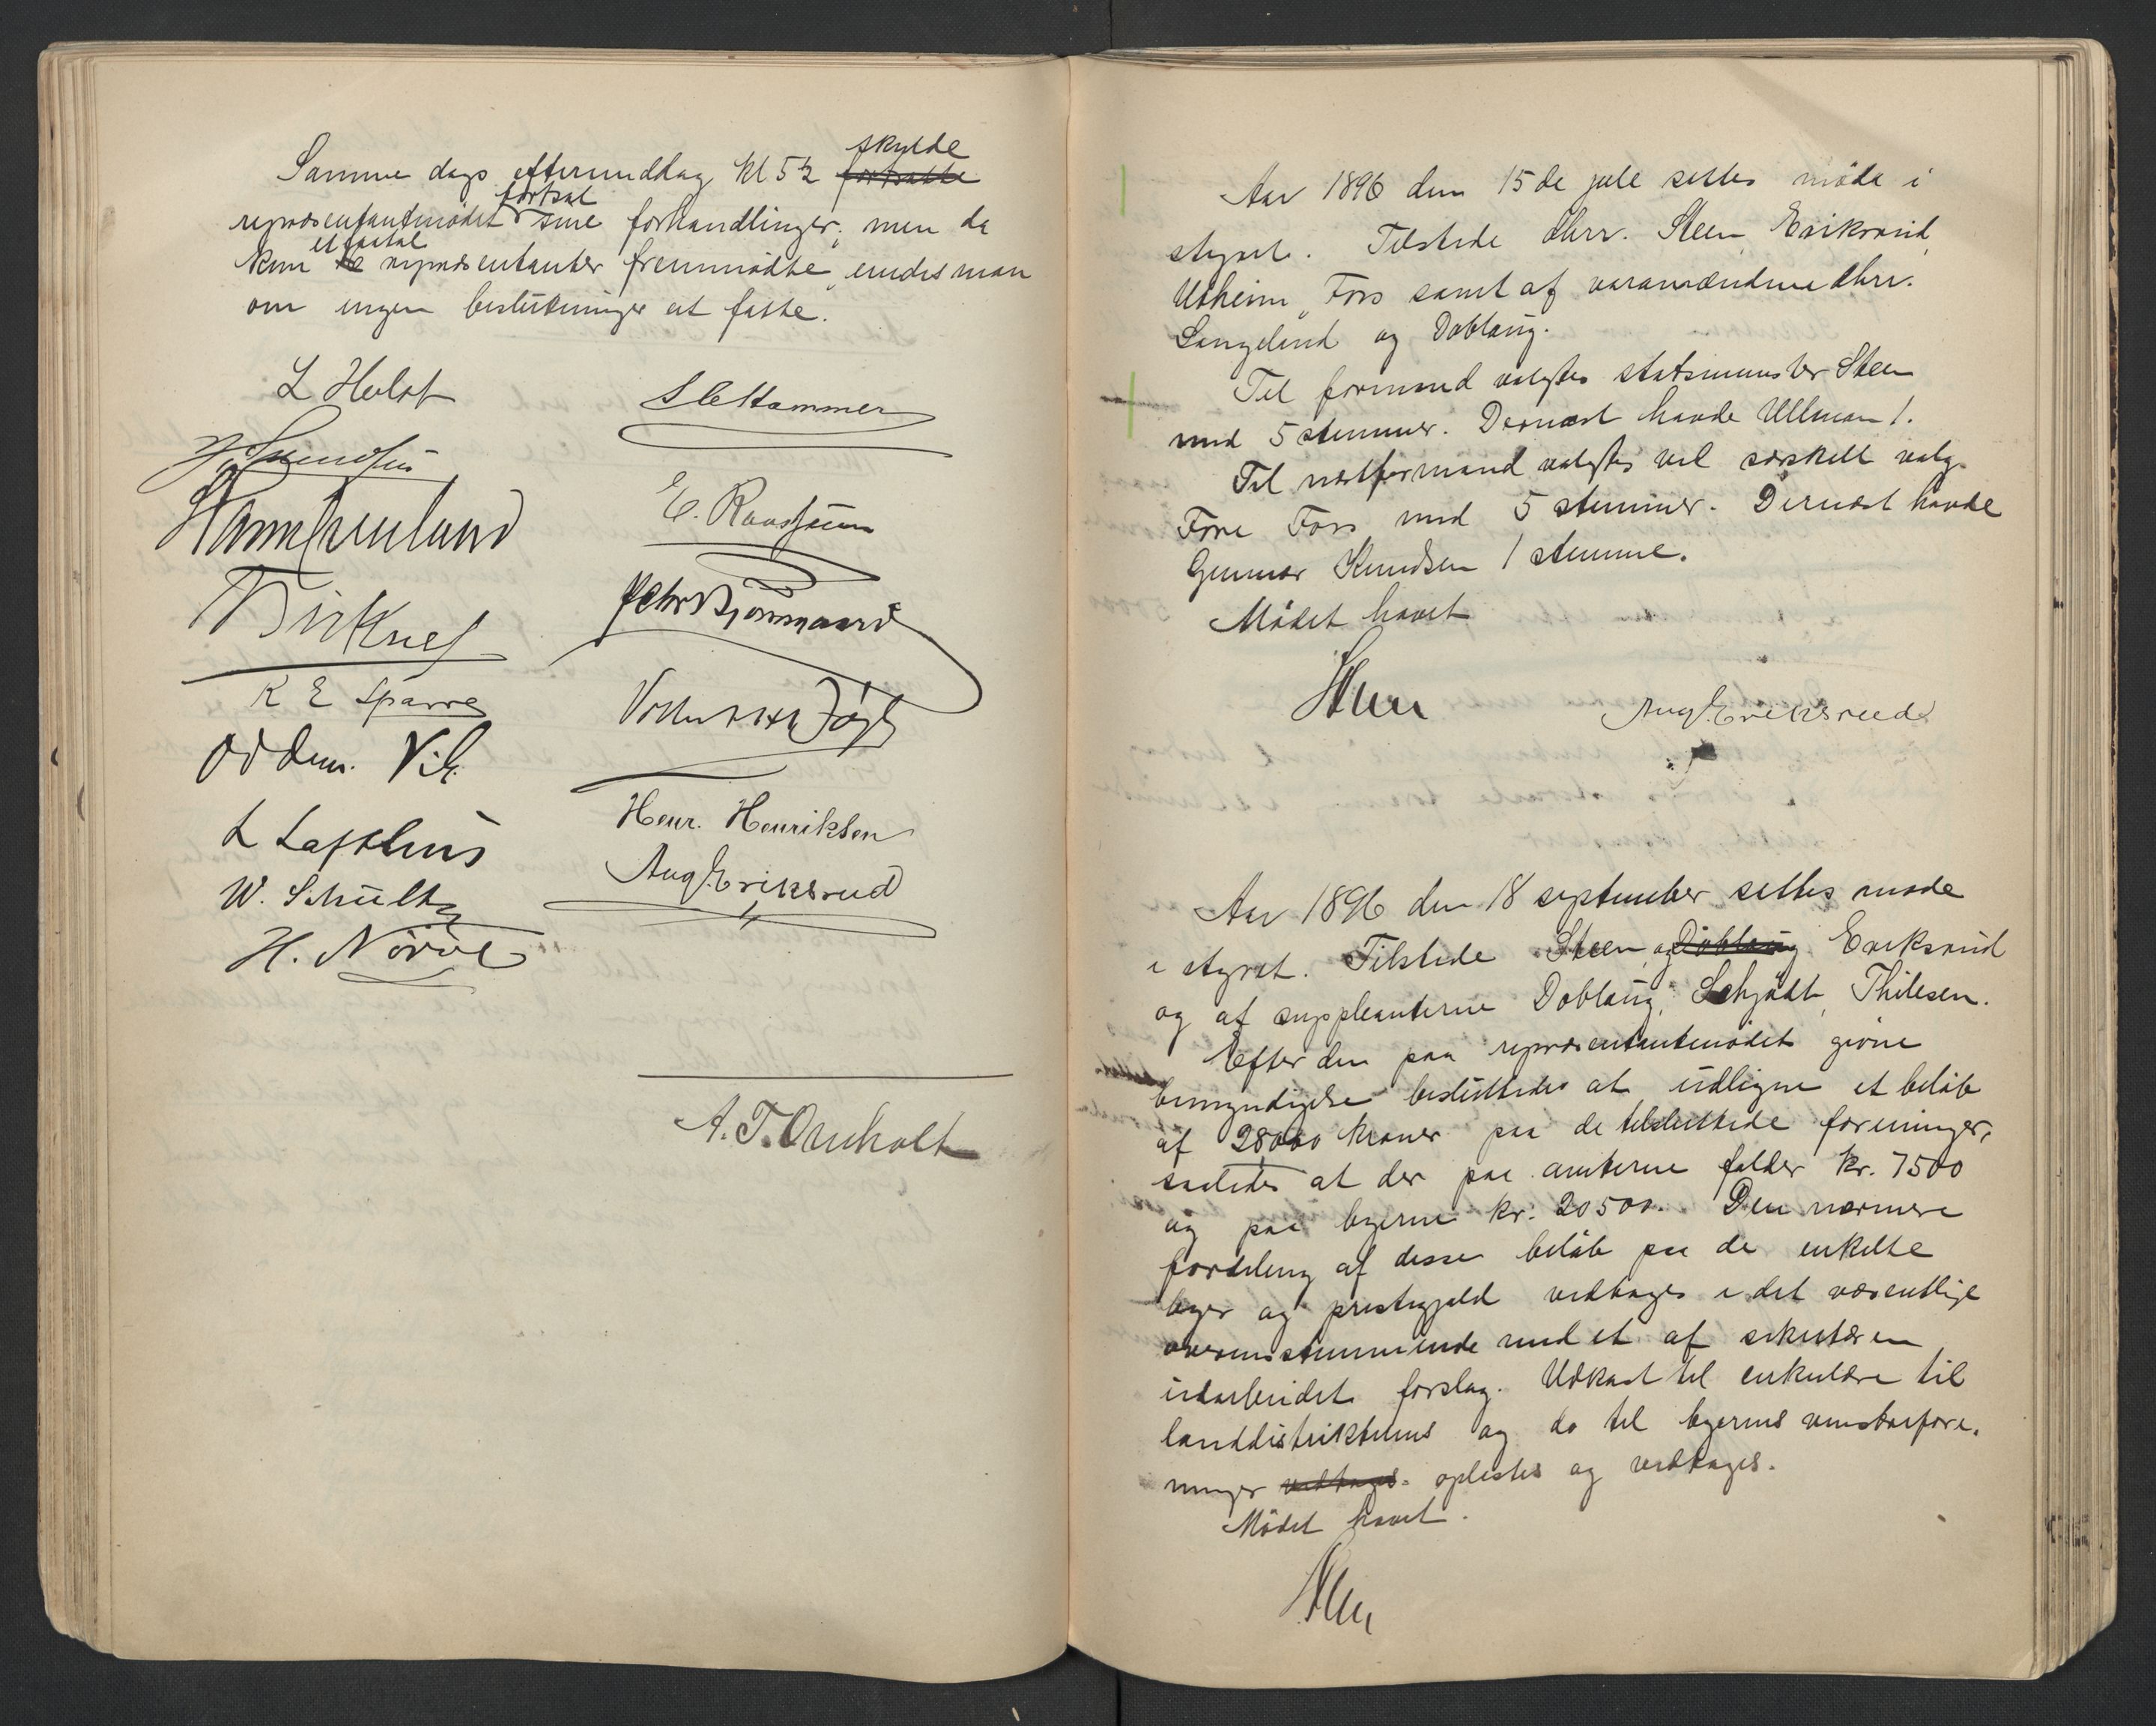 Samme dags eftermiddag kl 5½ ~~fortsatte~~ skulde
repræsentantmødet fortsat sine forhandlinger; men da
kun et faatal repræsentanter fremmødte, enedes man
om ingen beslutninger at fatte.
L Holst
K E Sparre
Oddm. Vik
L Lofthus
W. Schultz
H. Nörve
S C Hammer
E. Raastjum
Henr. Henriksen
Aug. Eriksrud
A. T. Omholt
Aar 1896 den 15de juli settes møde i
styret. Tilstede dhrr. Steen, Eriksrud,
Utheim, Foss samt af varamændene dhrr.
Langeland og Dobloug.
Til formand valgtes statsminister Steen
med 5 stemmer. Dernæst havde Ullman 1.
Til næstformand valgtes ved særskilt valg
Tore Foss med 5 stemmer. Dernæst havde
Gunnar Knudsen 1 stemme.
Mødet hævet
Steen
Aug. Eriksrud
Aar 1896 den 18 september settes møde
i styret. Tilstede Steen, og ~~Dobloug~~ Eriksrud
og af suppleanterne Dobloug, Schjødt, Thilesen.
Efter den paa repræsentantmødet givne
bemyndigelse besluttedes at udligne et beløb
af 28000 kroner paa de tilsluttede foreninger,
saaledes at der paa amterne falder kr. 7500
og paa byerne kr. 20500. Den nærmere
fordeling af disse beløb paa de enkelte
byer og prestegjeld vedtages i det væsentlige
overensstemmende med et af sekretæren
udarbeidet forslag. Udkast til cirkulære til
landdistrikternes og do til byernes venstrefore-
ninger ~~vedtages~~ oplæstes og vedtages.
Mødet hævet.
Steen